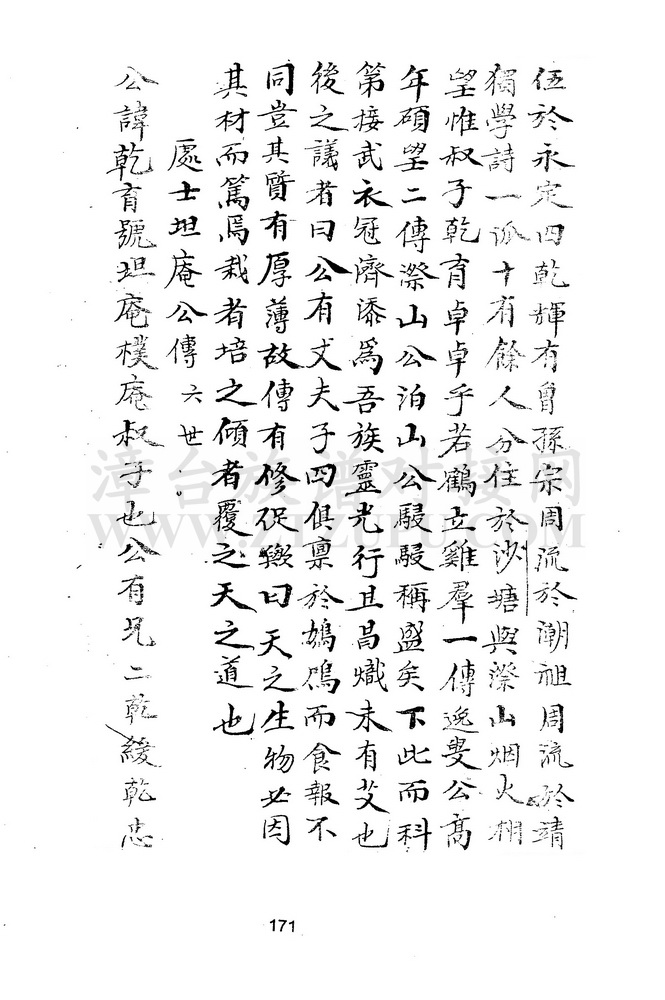 伍於永定四乾輝有曾孫宗周流於潮祖周流於靖
獨學詩一派十有餘人分住於沙塘與漈山烟火相
望惟叔子乾育卓卓乎若鶴立雞羣一傳逸叟公高
年碩望二傳漈山公泊山公駸駸稱盛矣下此而科
第接武衣冠濟濟為吾族靈光行且昌熾未有艾也
後之議者曰公有丈夫子四俱禀於鳲鳩而食報不
同豈其質有厚薄故傳有修促歟曰天之生物必因
其材而篤焉栽者培之傾者覆之天之道也
處士坦庵公傳 六世。
公諱乾育號坦庵樸庵叔子也公有兄二乾綾乾忠
漳台族譜對接网
WWW.ZTZUPU.COM
171